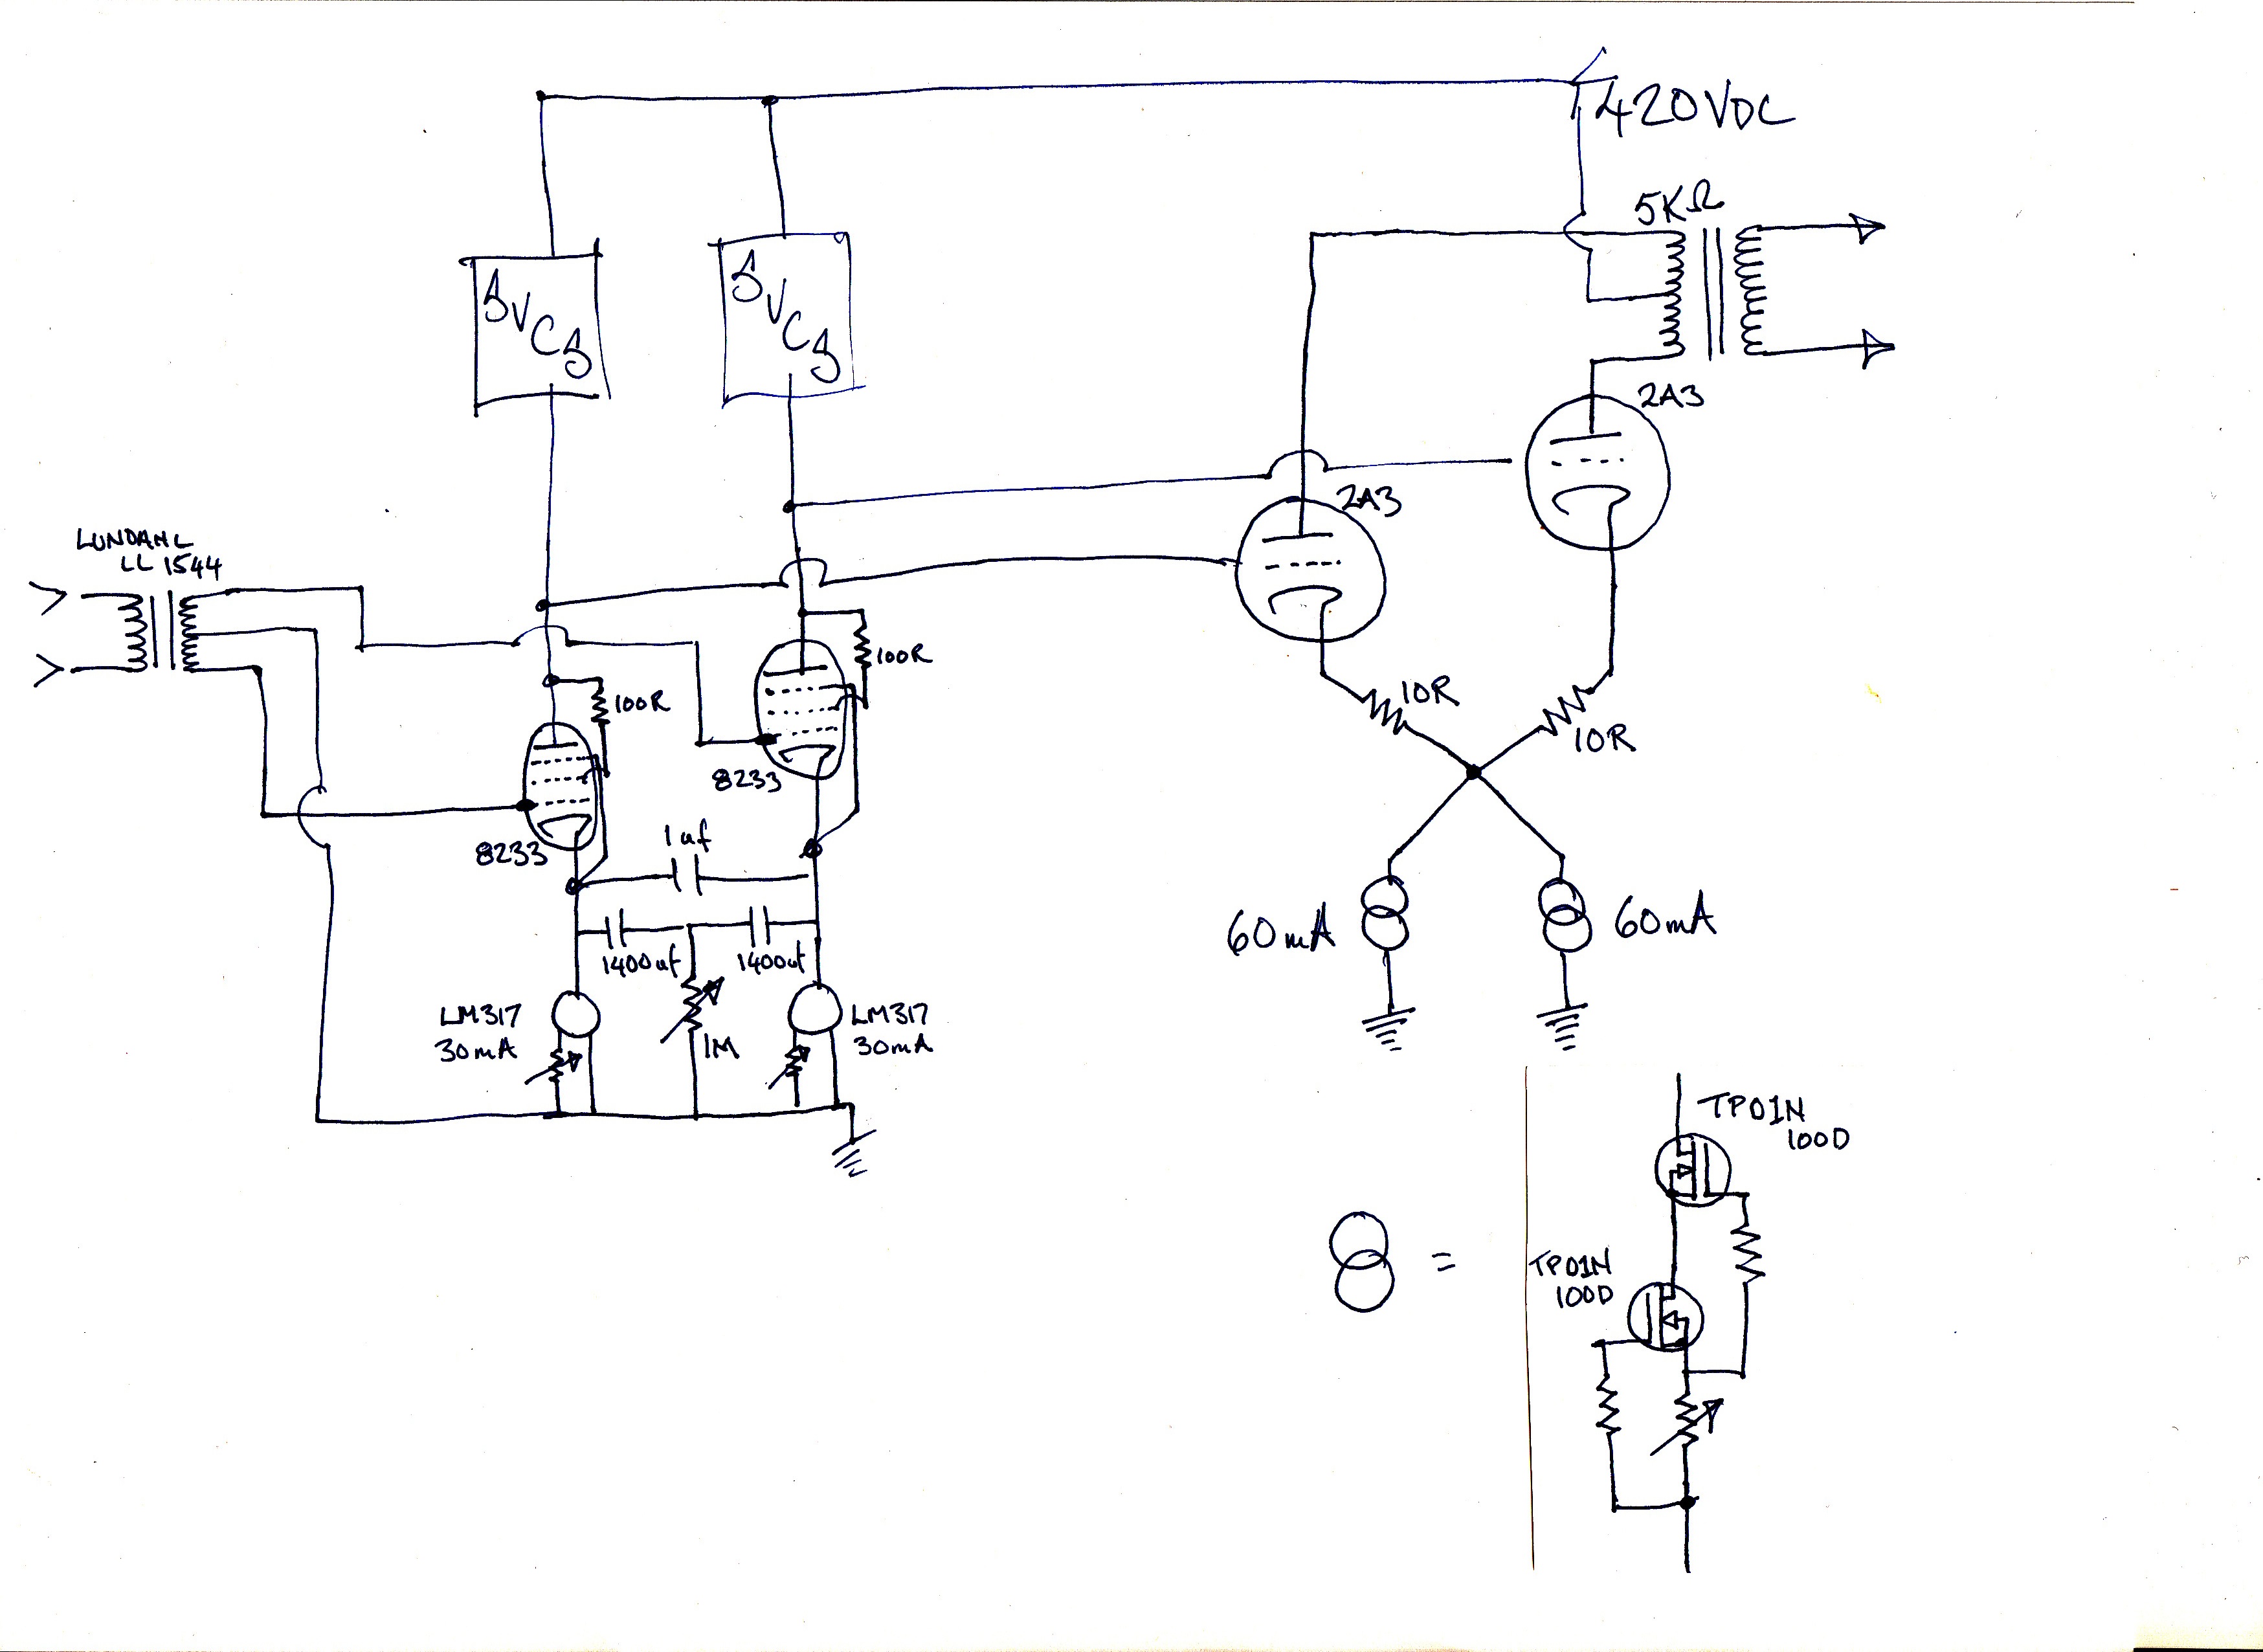 420VDC
5KΩ
SVCS
SVCS
2A3
2A3
LUNDAHL
LL1544
100R
100R
10R
10R
8233
8233
1uf
1400uf
1400uf
60mA
60mA
LM317
30mA
1M
LM317
30mA
TP01N
100D
=
TP01N
100D